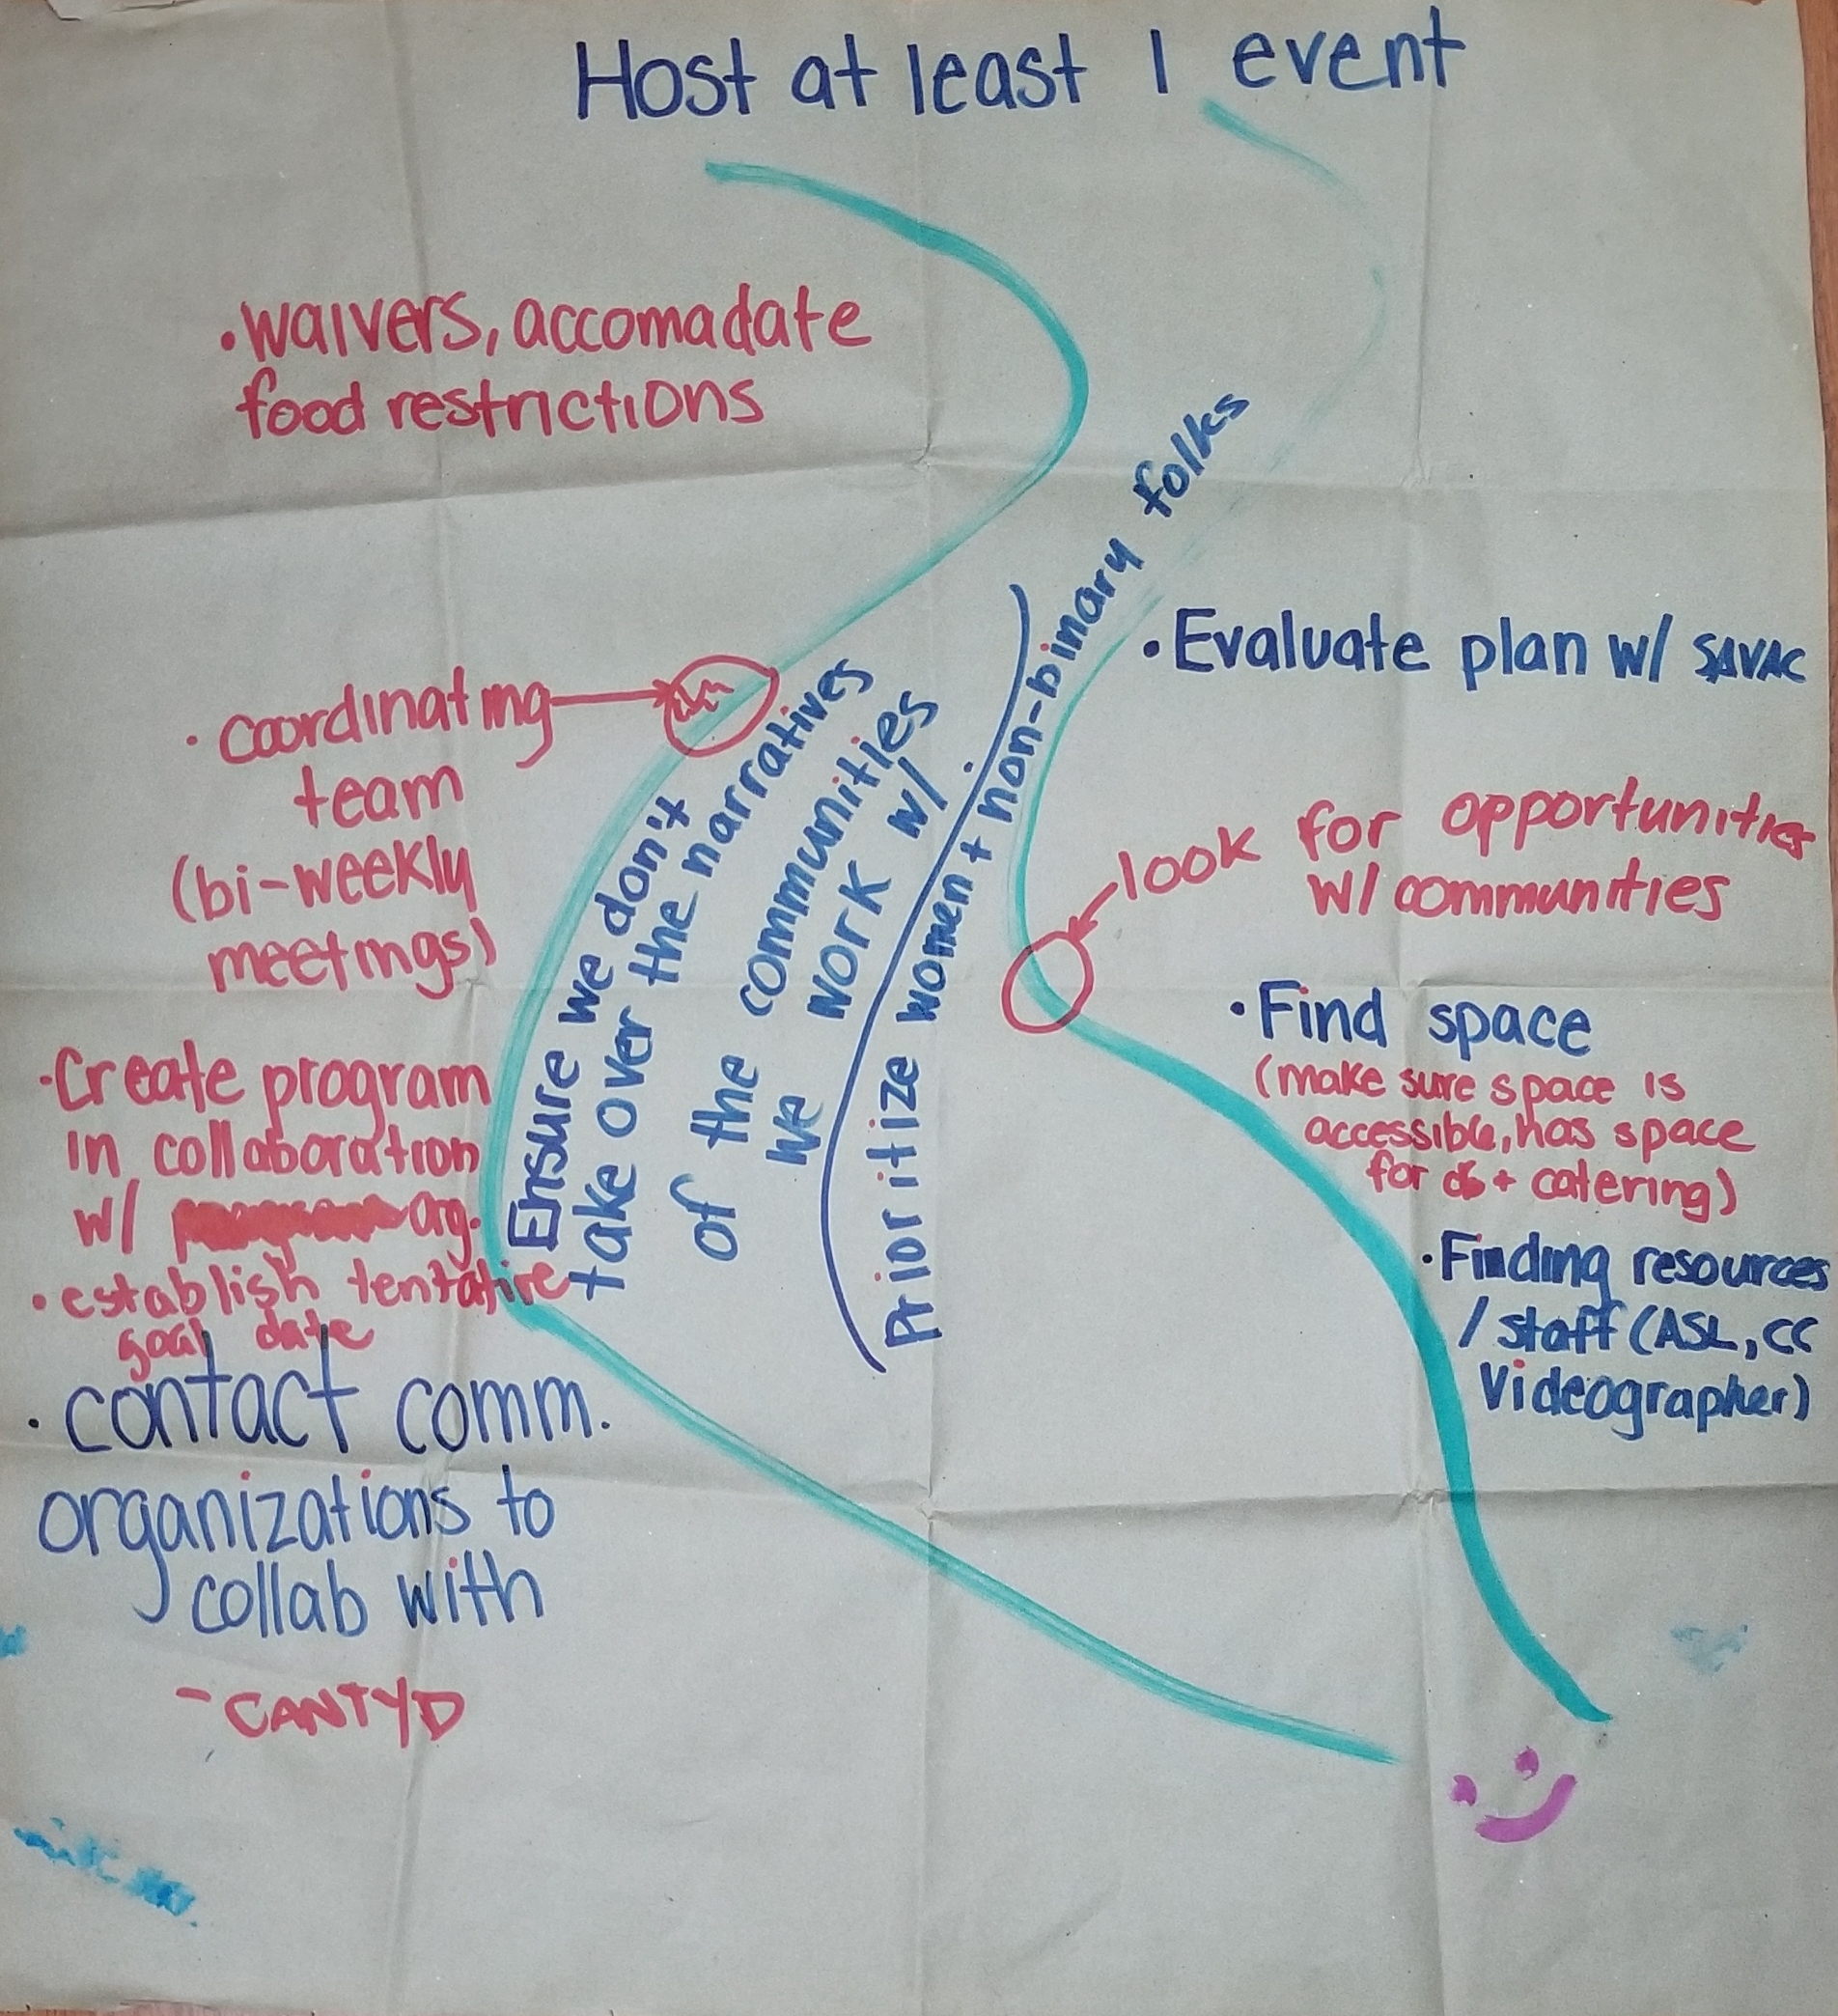 Host at least 1 event
•waivers, accomadate
food restrictions
• coordinating
team
(bi-weekly
meetings)
•Create program
in collaboration
w/ org.
• establish tentative
goal date
• contact comm.
organizations to
collab with
- CANTYD
Ensure we don't
take over the narratives
of the communities
we work w/
Prioritize women + non-binary folks
• Evaluate plan w/ SAVAC
look for opportunities
w/ communities
• Find space
(make sure space is
accessible, has space
for + catering)
• Finding resources
/ staff (ASL, CC
Videographer)